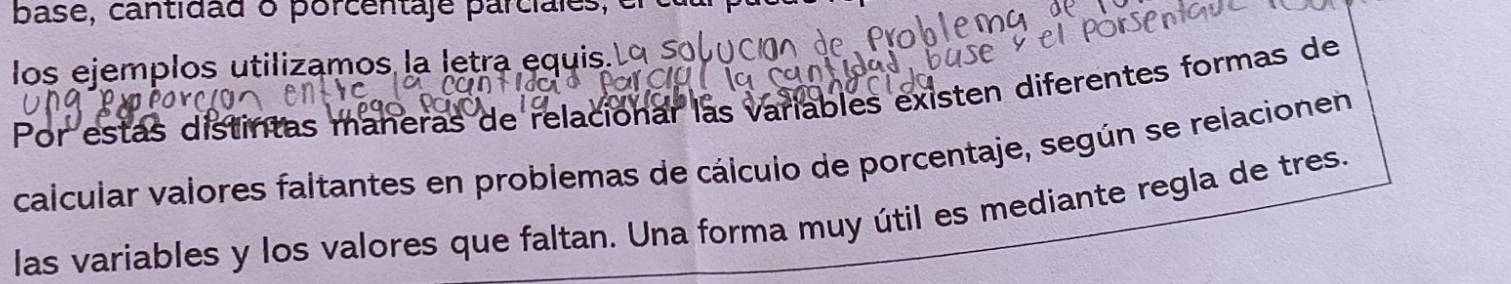 base, cantidad o porcentaje parciales, el cual
los ejemplos utilizamos la letra equis. La solucion de problema de
ung exporcion entre la cantidad parcial la cantidad, base y el porsentaje
luego para la variable desconocida
Por estas distintas maneras de relacionar las variables existen diferentes formas de
calcular valores faltantes en problemas de cálculo de porcentaje, según se relacionen
las variables y los valores que faltan. Una forma muy útil es mediante regla de tres.